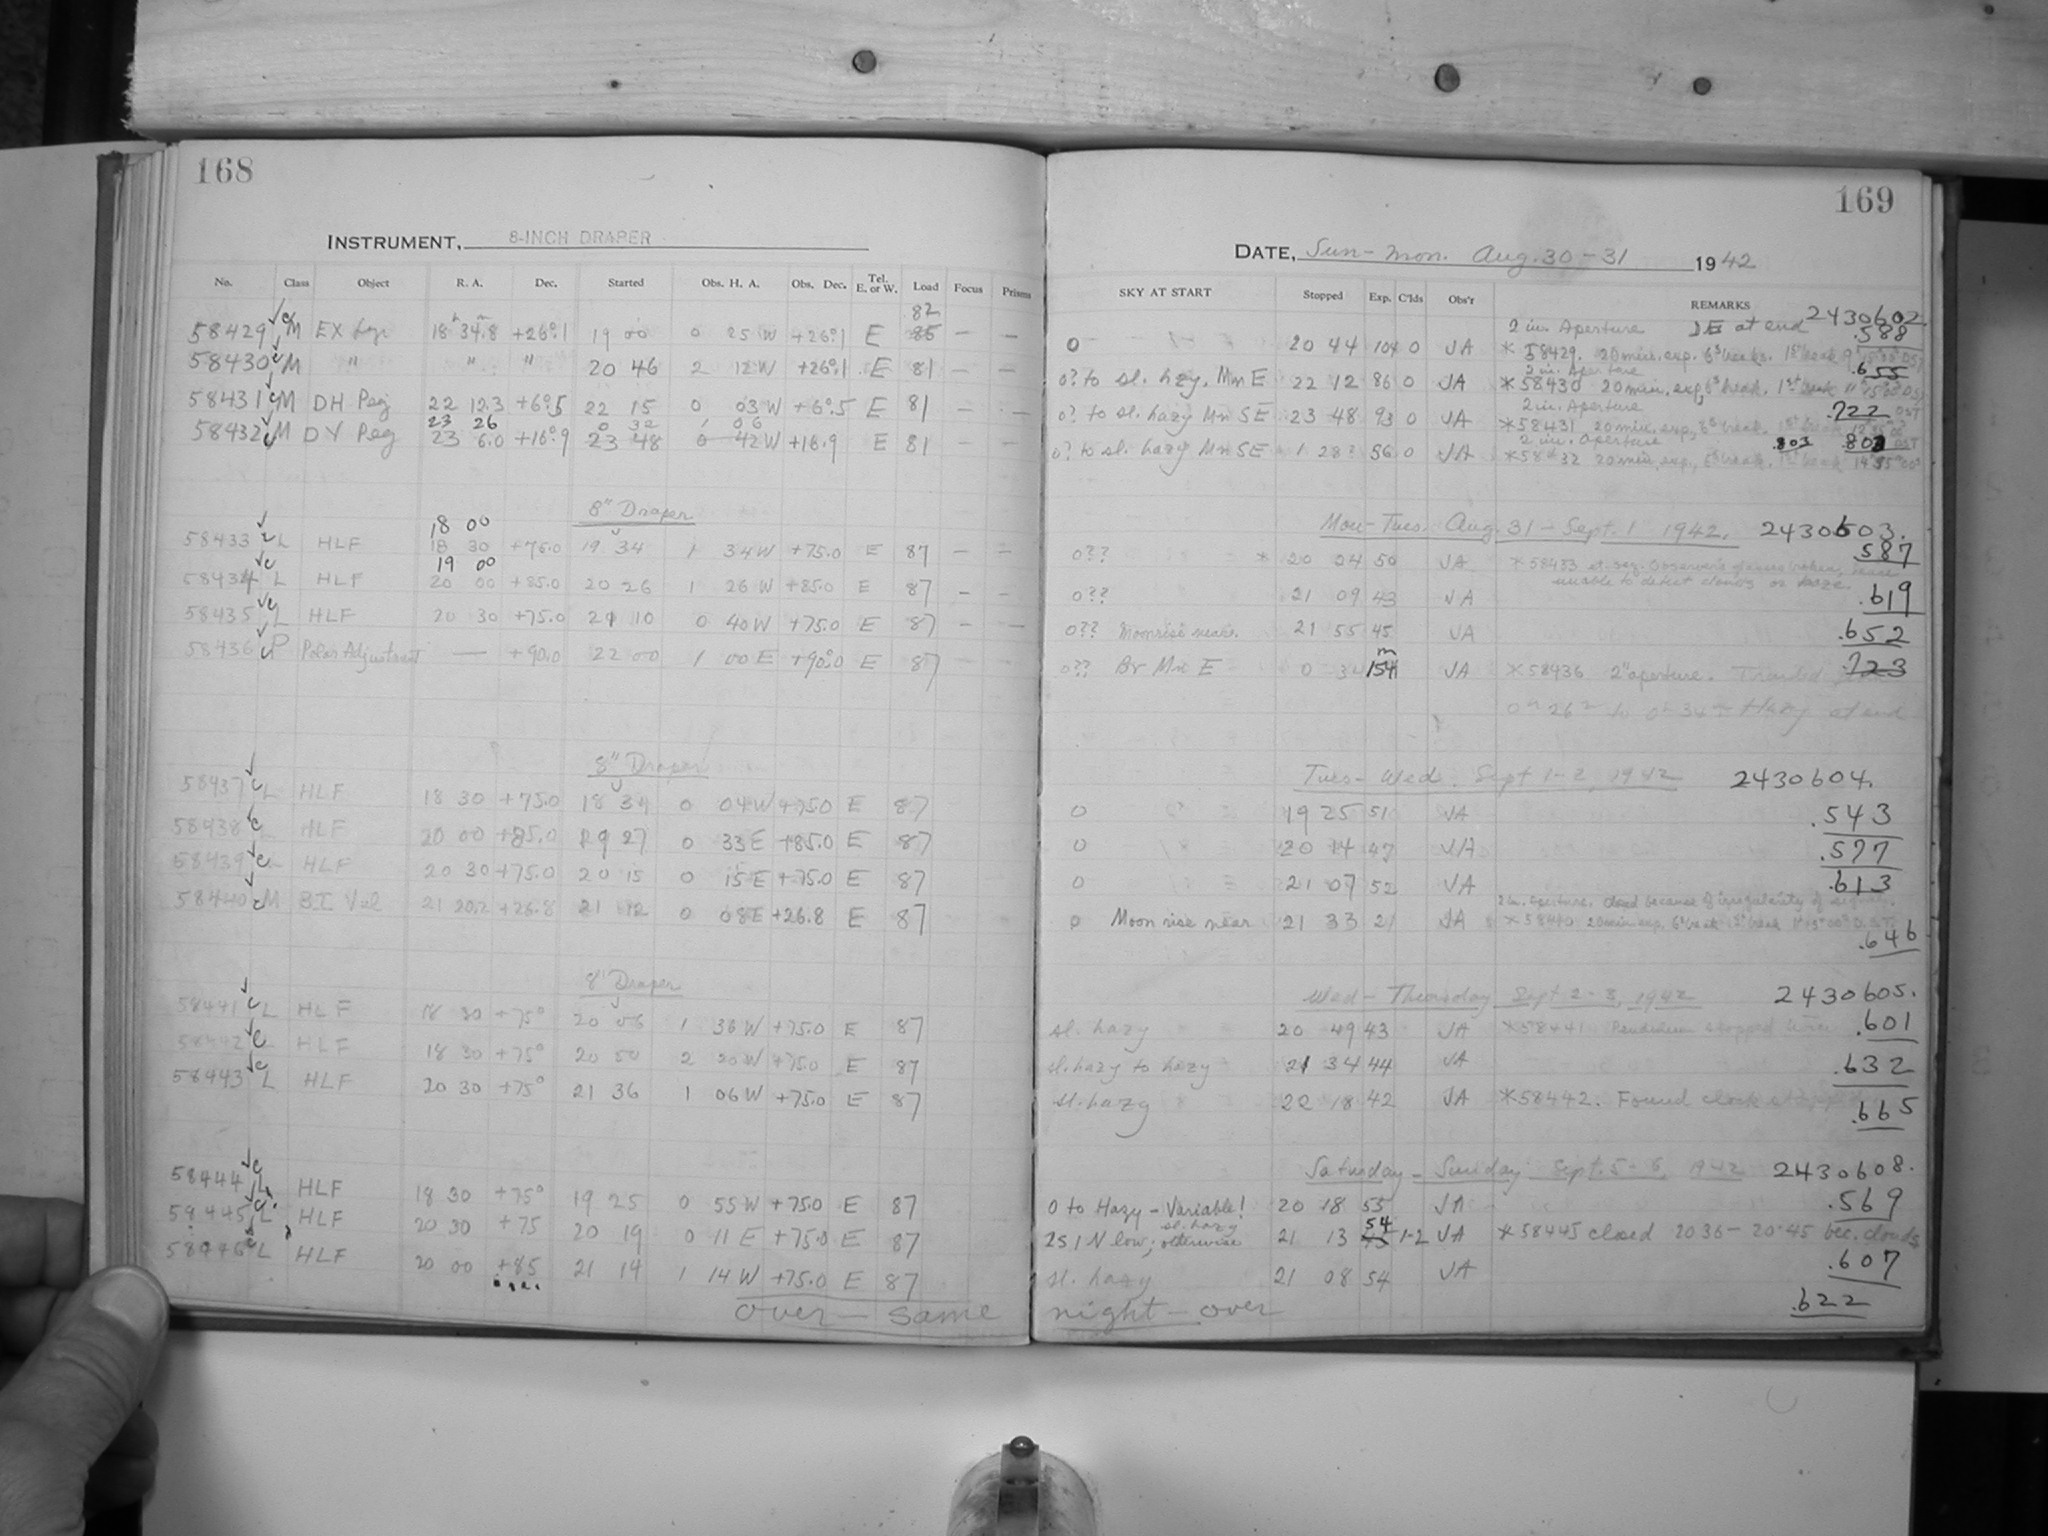 168
INSTRUMENT, 8-INCH DRAPER
No. Class Object R. A. Dec. Started Obs. H. A. Obs. Dec. Tel. E. or W. Load Focus Prisms
82
58429 M EX Lyr 18h 34.8m +26°.1 19 00 0 25 W +26°.1 E 85 — —
58430 M " " " 20 46 2 12 W +26°.1 E 81 — —
58431 M DH Peg 22 12.3 +6°.5 22 15 0 03 W +6°.5 E 81 — —
23 26 0 32 1 06
58432 M DY Peg 23 6.0 +16°.9 23 48 0 42 W +16.9 E 81 — —
8" Draper
18 00
58433 L HLF 18 30 +75.0 19 34 1 34 W +75.0 E 87 — —
19 00
58434 L HLF 20 00 +85.0 20 26 1 26 W +85.0 E 87 — —
58435 L HLF 20 30 +75.0 21 10 0 40 W +75.0 E 87 — —
58436 P Polar Adjustment — +90.0 22 00 1 00 E +90°.0 E 87 — —
8" Draper
58437 L HLF 18 30 +75.0 18 34 0 04 W +75.0 E 87
58438 L HLF 20 00 +85.0 19 27 0 33 E +85.0 E 87
58439 L HLF 20 30 +75.0 20 15 0 15 E +75.0 E 87
58440 M BI Vul 21 20.2 +26.8 21 12 0 08 E +26.8 E 87
8" Draper
58441 L HLF 18 30 +75° 20 06 1 36 W +75.0 E 87
58442 L HLF 18 30 +75° 20 50 2 20 W +75.0 E 87
58443 L HLF 20 30 +75° 21 36 1 06 W +75.0 E 87
58444 L HLF 18 30 +75° 19 25 0 55 W +75.0 E 87
58445 L HLF 20 30 +75 20 19 0 11 E +75.0 E 87
58446 L HLF 20 00 +85 21 14 1 14 W +75.0 E 87
over — same
169
DATE, Sun - Mon. Aug. 30 - 31 1942
SKY AT START Stopped Exp. C'lds Obs'r REMARKS
2430602.
2 in. Aperture at end .588
0 20 44 104 0 JA * 58429. 20 min. exp. 6s breaks. 1st break
2 in. Aperture .655
0? to sl. hzy, Mn E 22 12 86 0 JA * 58430 20 min. exp, 6s break. 1st break
2 in. Aperture .722 DST
0? to sl. hazy Mn SE 23 48 93 0 JA * 58431 20 min. exp, 6s break. 1st break
2 in. Aperture .803 .803 DST
0? to sl. hazy Mn SE 1 28 56 0 JA * 58432 20 min. exp., 6s break. 1st break
Mon - Tues. Aug. 31 - Sept. 1 1942. 2430603.
.587
0?? * 20 24 50 JA * 58433 et. seq. Observer's glasses broken, hence
unable to detect clouds or haze.
0?? 21 09 43 JA .619
0?? Moonrise near. 21 55 45 JA .652
0?? Br Mn E 0 34 154m JA * 58436 2" aperture. Trailed .723
0h 26m to 0h 34m Hazy at end
Tues - Wed. Sept 1-2, 1942 2430604.
0 19 25 51 JA .543
0 20 14 47 JA .577
0 21 07 52 JA .613
2 in. aperture. closed because of irregularity of signals.
0 Moon rise near 21 33 21 JA * 58440 20 min. exp. 6s break 1st break
.646
Wed - Thursday Sept 2-3, 1942 2430605.
sl. hazy 20 49 43 JA * 58441 Pendulum stopped .601
sl. hazy to hazy 21 34 44 JA .632
sl. hazy 22 18 42 JA * 58442. Found clock stopped
.665
Saturday - Sunday Sept. 5-6, 1942 2430608.
0 to Hazy - Variable! 20 18 53 JA .569
sl. hazy 54
251 N low; otherwise 21 13 45 1-2 JA * 58445 closed 20 36 - 20 45 bec. clouds
.607
sl. hazy 21 08 54 JA
.622
night - over